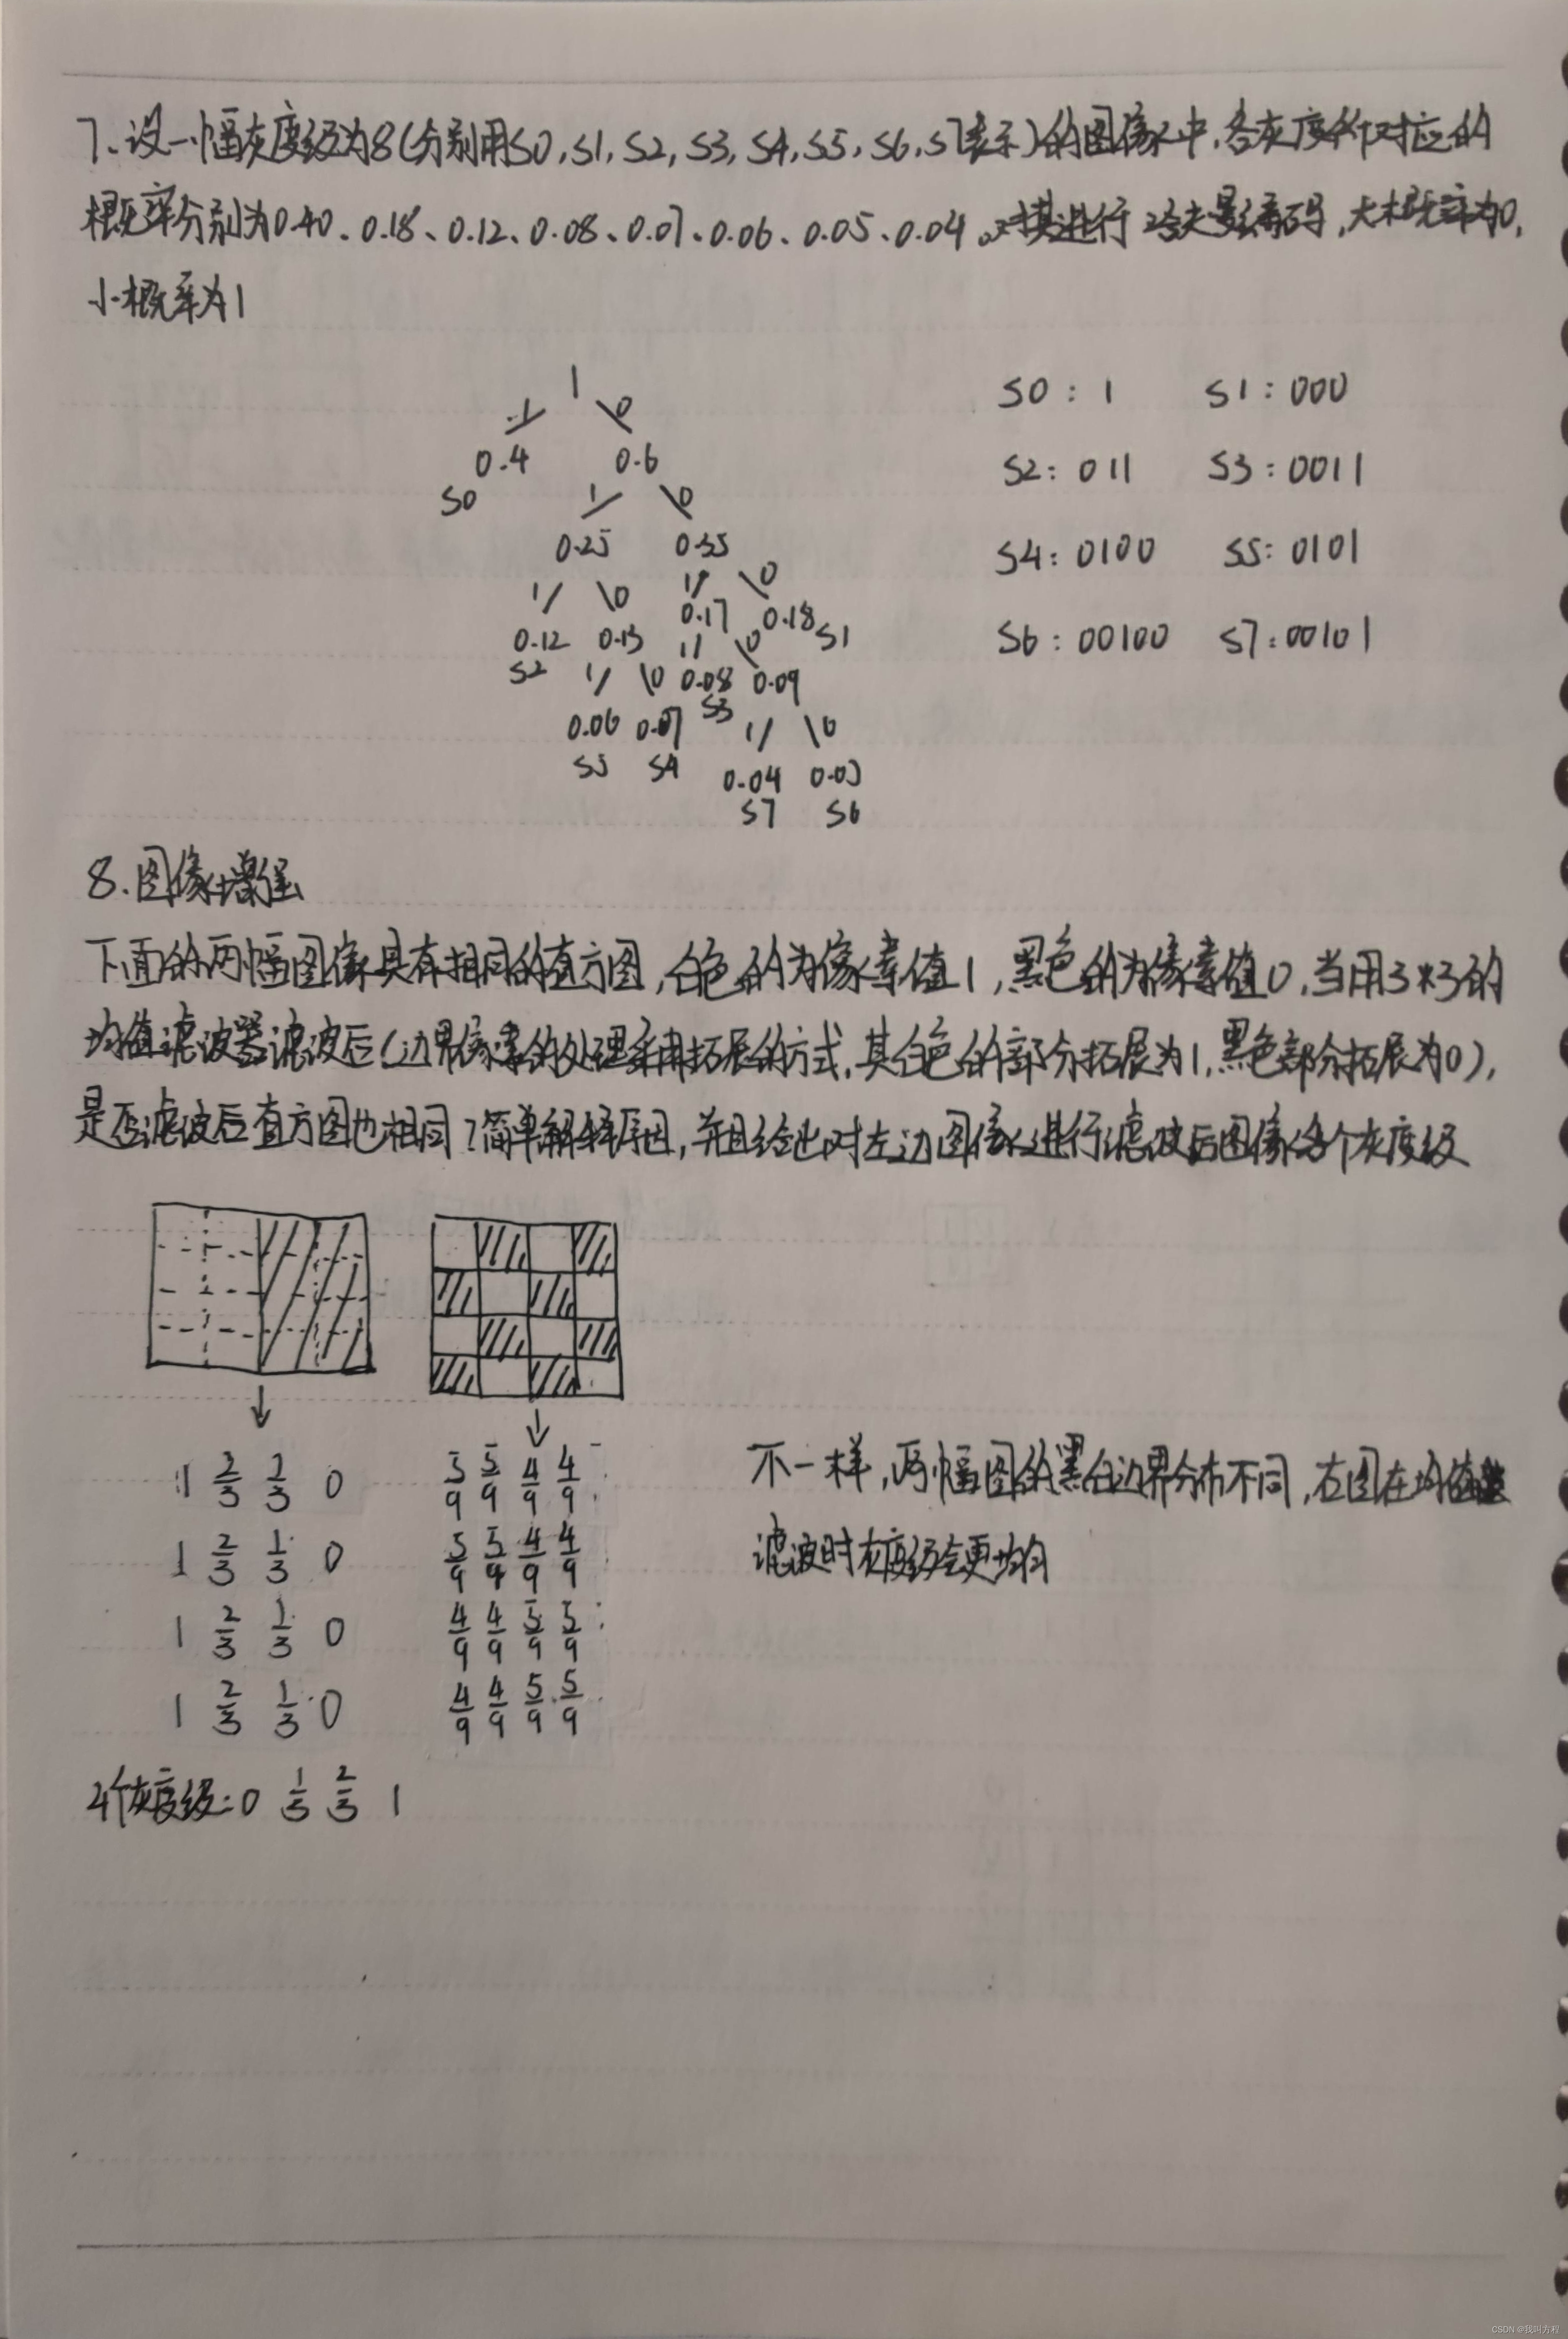 7、设一幅灰度级为8(分别用S0,S1,S2,S3,S4,S5,S6,S7表示)的图像中,各灰度级对应的
概率分别为0.40、0.18、0.12、0.08、0.07、0.06、0.05、0.04。对其进行哈夫曼编码,大概率为0,
小概率为1
1
1 0
0.4 0.6
S0
1 0
0.25 0.35
1 0 1 0
0.12 0.13 0.17 0.18
S2 S1
1 0 1 0
0.06 0.07 0.08 0.09
S5 S4 S3
1 0
0.04 0.05
S7 S6
S0：1 S1：000
S2：011 S3：0011
S4：0100 S5：0101
S6：00100 S7：00101
8、图像增强
下面的两幅图像具有相同的直方图,白色的为像素值1,黑色的为像素值0,当用3*3的
均值滤波器滤波后(边界像素的处理采用拓展的方式,其白色的部分拓展为1,黑色部分拓展为0),
是否滤波后直方图也相同?简单解释原因,并且给出对左边图像进行滤波后图像各个灰度级
1 2/3 1/3 0
1 2/3 1/3 0
1 2/3 1/3 0
1 2/3 1/3 0
5/9 5/9 4/9 4/9
5/9 5/9 4/9 4/9
4/9 4/9 5/9 5/9
4/9 4/9 5/9 5/9
不一样,两幅图的黑白边界分布不同,右图在均值
滤波时灰度级会更均匀
4个灰度级：0 1/3 2/3 1
CSDN @我叫方程